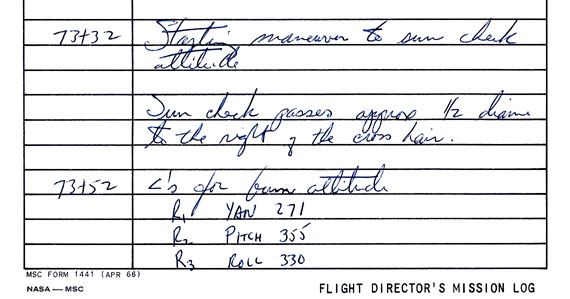 73+32 Starting maneuver to sun check
attitude
Sun check passes approx 1/2 diame
to the right of the cross hair.
73+52 <'s for burn attitude
R1 YAW 271
R2 PITCH 355
R3 ROLL 330
MSC FORM 1441 (APR 66)
NASA — MSC FLIGHT DIRECTOR'S MISSION LOG